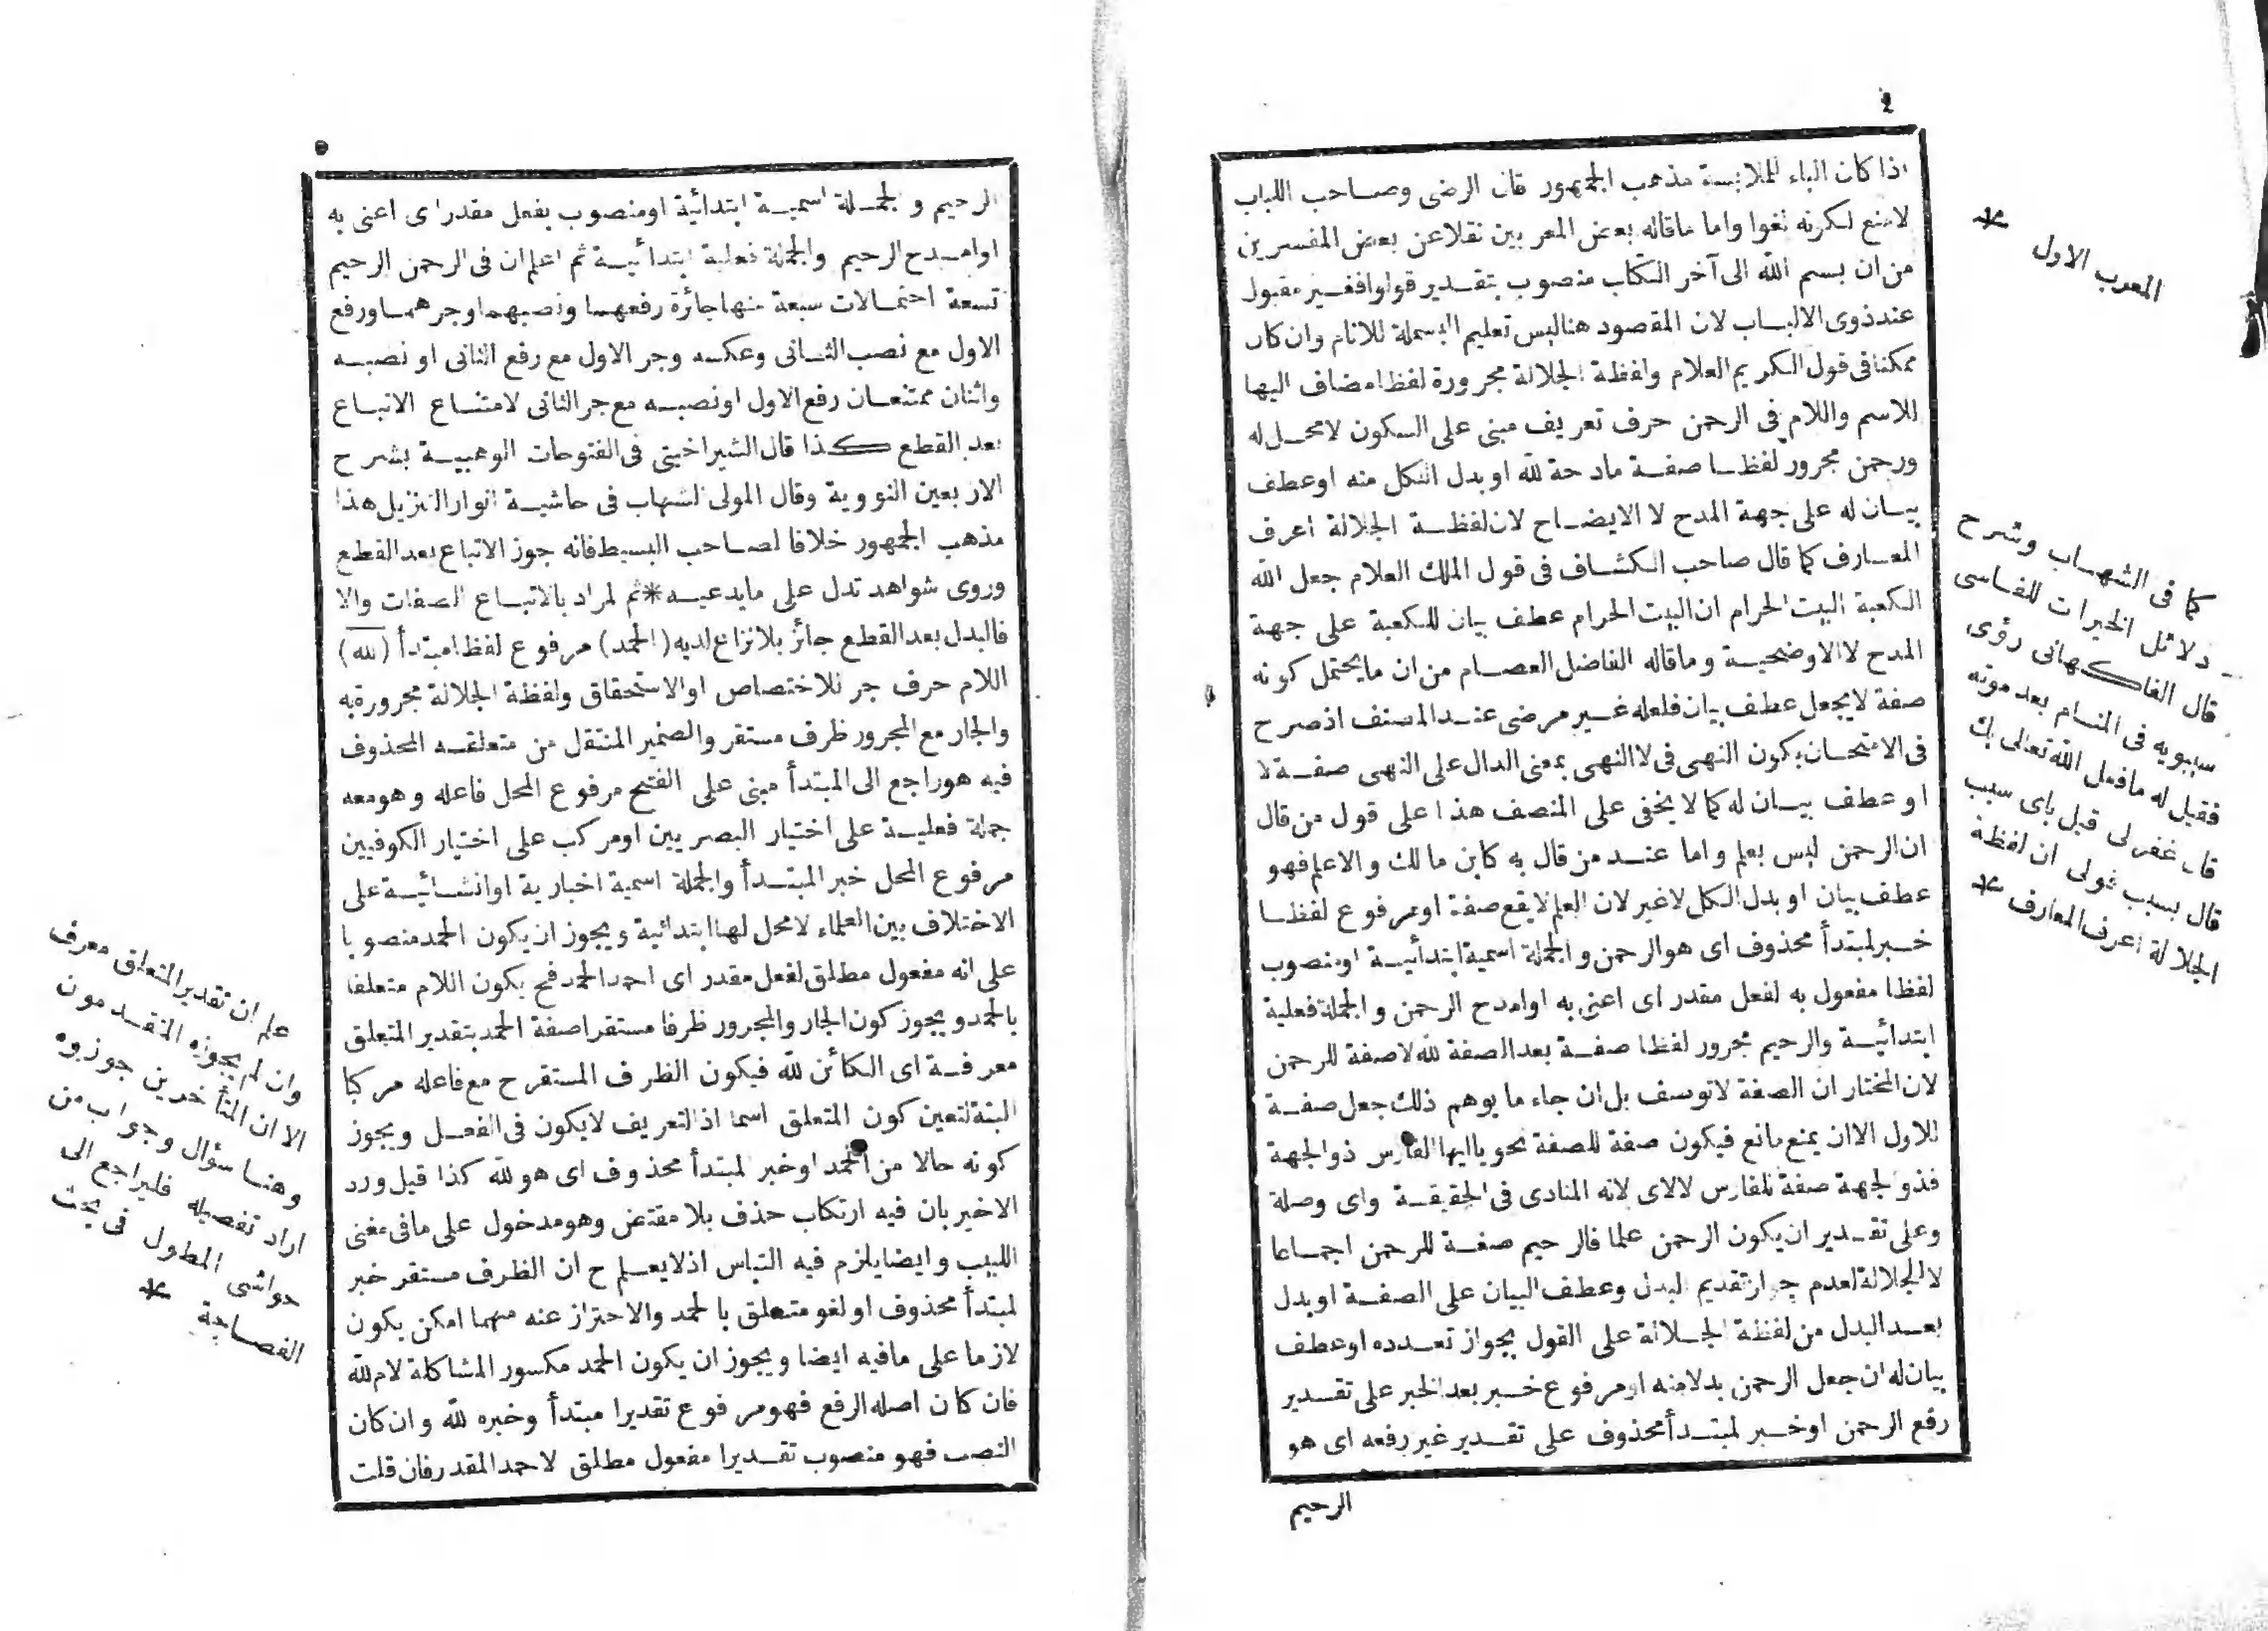 ٤
اذا كان الباء للملابسة مذهب الجمهور قال الرضى وصاحب اللباب
لامنع لكونه لغوا واما ماقاله بعض المعربين نقلا عن بعض المفسرين
من ان بسم الله الى آخر الكتاب منصوب بتقدير قولوا فغير مقبول
عند ذوى الالباب لان المقصود هنا ليس تعليم البسملة للانام وان كان
ممكنا فى قول الكريم العلام ولفظة الجلالة مجرورة لفظا مضاف اليها
للاسم واللام فى الرحمن حرف تعريف مبنى على السكون لامحل له
ورحمن مجرور لفظا صفة مادحة لله او بدل الكل منه او عطف
بيان له على جهة المدح لا الايضاح لان لفظة الجلالة اعرف
المعارف كما قال صاحب الكشاف فى قول الملك العلام جعل الله
الكعبة البيت الحرام ان البيت الحرام عطف بيان للكعبة على جهة
المدح لا الاوضحية وما قاله الفاضل العصام من ان مايحتمل كونه
صفة لايجعل عطف بيان فلعله غير مرضى عند المصنف اذ صرح
فى الامتحان بكون النهى فى لا النهى بمعنى الدال على النهى صفة لا
او عطف بيان له كما لا يخفى على المنصف هذا على قول من قال
ان الرحمن ليس بعلم واما عند من قال به كابن مالك والاعلم فهو
عطف بيان او بدل الكل لاغير لان العلم لايقع صفة او مرفوع لفظا
خبر لمبتدأ محذوف اى هو الرحمن والجملة اسمية ابتدائية او منصوب
لفظا مفعول به لفعل مقدر اى اعنى به او امدح الرحمن والجملة فعلية
ابتدائية والرحيم مجرور لفظا صفة بعد الصفة لله لا صفة للرحمن
لان المختار ان الصفة لاتوسف بل ان جاء ما يوهم ذلك جعل صفة
للاول الا ان يمنع مانع فيكون صفة للصفة نحو ياايها الفارس ذو الجهة
فذو الجهة صفة للفارس لا لاى لانه المنادى فى الحقيقة واى وصلة
وعلى تقدير ان يكون الرحمن علما فالرحيم صفة للرحمن اجماعا
لا للجلالة لعدم جواز تقديم البدل وعطف البيان على الصفة او بدل
بعد البدل من لفظة الجلالة على القول بجواز تعدده او عطف
بيان له ان جعل الرحمن بدلا منه او مرفوع خبر بعد الخبر على تقدير
رفع الرحمن او خبر لمبتدأ محذوف على تقدير غير رفعه اى هو
الرحيم
المعرب الاول *
كما فى الشهاب وشرح
دلائل الخيرات للفاسى
قال الفاكهانى رؤى
سيبويه فى المنام بعد موته
فقيل له ما فعل الله تعالى بك
قال غفرلى قيل باى سبب
قال بسبب قولى ان لفظة
الجلالة اعرف المعارف *
٥
الرحيم والجملة اسمية ابتدائية او منصوب بفعل مقدر اى اعنى به
او امدح الرحيم والجملة فعلية ابتدائية ثم اعلم ان فى الرحمن الرحيم
تسعة احتمالات سبعة منها جائزة رفعهما ونصبهما وجرهما ورفع
الاول مع نصب الثانى وعكسه وجر الاول مع رفع الثانى او نصبه
واثنان ممتنعان رفع الاول او نصبه مع جر الثانى لامتناع الاتباع
بعد القطع كذا قال الشبراخيتى فى الفتوحات الوهبية بشرح
الاربعين النووية وقال المولى الشهاب فى حاشية انوار التنزيل هذا
مذهب الجمهور خلافا لصاحب البسيط فانه جوز الاتباع بعد القطع
وروى شواهد تدل على مايدعيه * ثم المراد بالاتباع الصفات والا
فالبدل بعد القطع جائز بلانزاع لديه (الحمد) مرفوع لفظا مبتدأ (لله)
اللام حرف جر للاختصاص او الاستحقاق ولفظة الجلالة مجرورة به
والجار مع المجرور ظرف مستقر والضمير المنتقل من متعلقه المحذوف
فيه هو راجع الى المبتدأ مبنى على الفتح مرفوع المحل فاعله وهو معه
جملة فعلية على اختيار البصريين او مركب على اختيار الكوفيين
مرفوع المحل خبر المبتدأ والجملة اسمية اخبارية او انشائية على
الاختلاف بين العلماء لامحل لها ابتدائية ويجوز ان يكون الحمد منصوبا
على انه مفعول مطلق لفعل مقدر اى احمد الحمد فح يكون اللام متعلقا
بالحمد ويجوز كون الجار والمجرور ظرفا مستقرا صفة الحمد بتقدير المتعلق
معرفة اى الكائن لله فيكون الظرف المستقر ح مع فاعله مركبا
البتة لتعين كون المتعلق اسما اذ التعريف لايكون فى الفعل ويجوز
كونه حالا من الحمد او خبر لمبتدأ محذوف اى هو لله كذا قيل ورد
الاخير بان فيه ارتكاب حذف بلا مقتض وهو مدخول على مافى مغنى
اللبيب وايضا يلزم فيه التباس اذ لايعلم ح ان الظرف مستقر خبر
لمبتدأ محذوف او لغو متعلق بالحمد والاحتراز عنه مهما امكن يكون
لازما على مافيه ايضا ويجوز ان يكون الحمد مكسور المشاكلة لام لله
فان كان اصله الرفع فهو مرفوع تقديرا مبتدأ وخبره لله وان كان
النصب فهو منصوب تقديرا مفعول مطلق لاحمد المقدر فان قلت
علم ان تقدير المتعلق معرف
وان لم يجوزه المتقدمون
الا ان المتأخرين جوزوه
وهنا سؤال وجواب من
اراد تفصيله فليراجع الى
حواشى المطول فى بحث
الفصاحة *